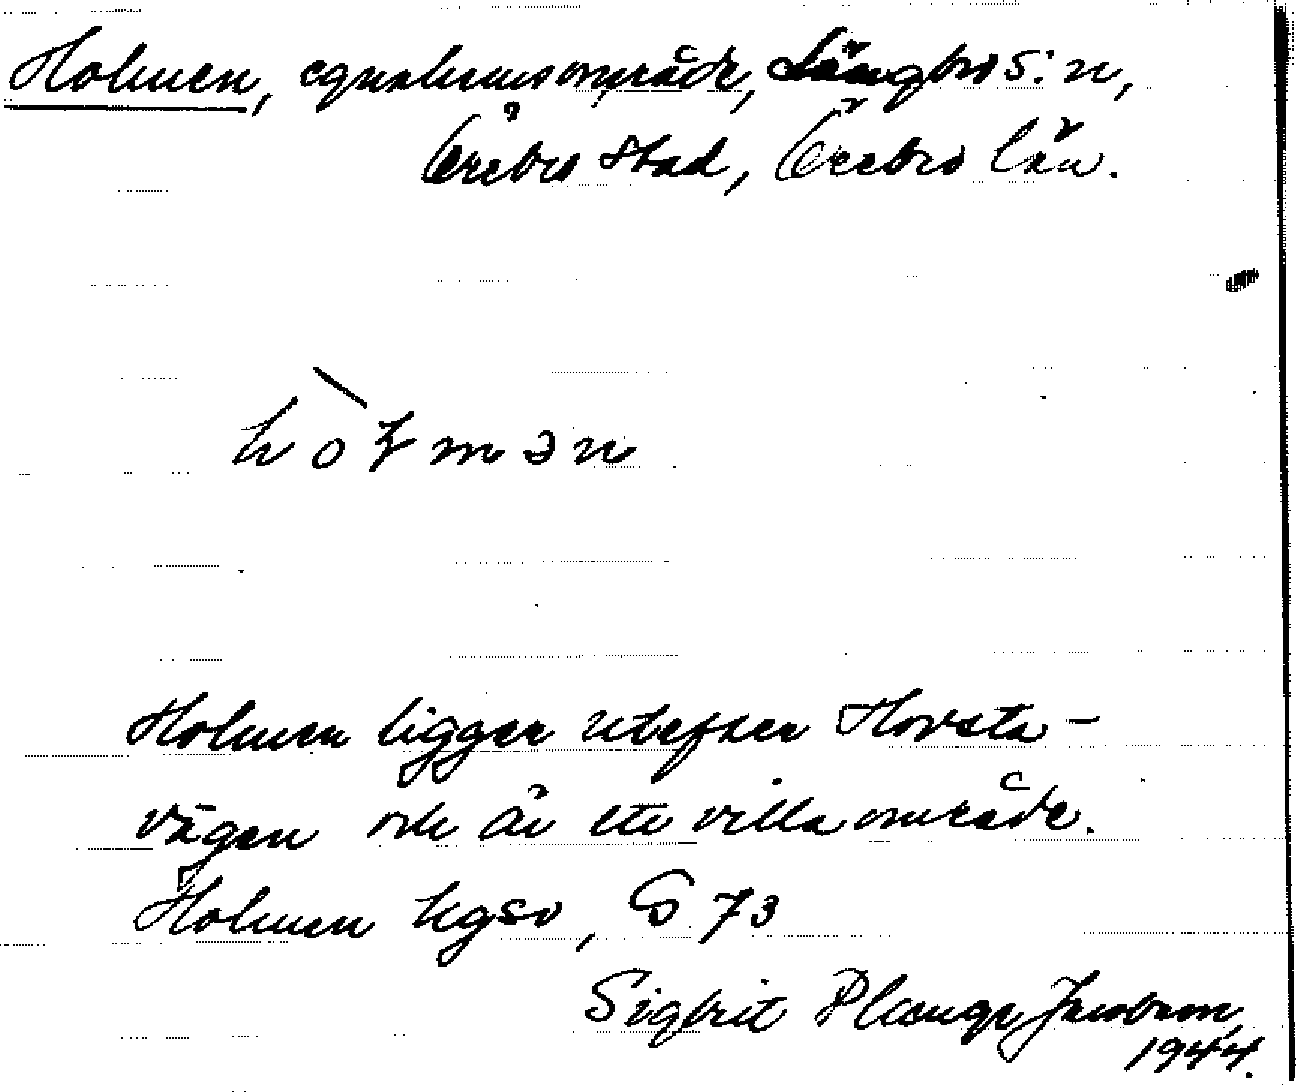 Holmen, egnahemsområde, Längbro s:n,
Örebro stad, Örebro län.
hòɫmən
Holmen ligger utefter Hovsta-
vägen och är ett villaområde.
Holmen hgsv, S 73
Sigbrit Plænge Jacobson,
1944.